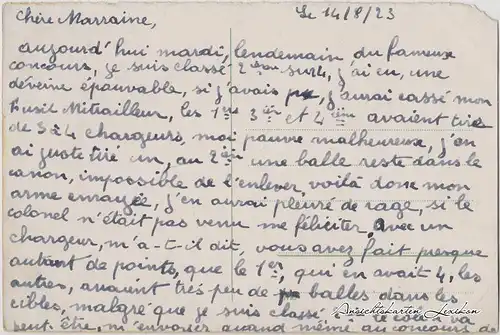 Chère Marraine,
Le 14/8/23
aujourd'hui mardi, lendemain du fameux
concours, je suis classé 2ème sur 4, j'ai eu, une
déveine épauvable, si j'avais pu, j'aurai cassé mon
Fusil Mitrailleur, les 1er 3ème et 4ème avaient tiré
de 3 à 4 chargeurs, moi pauvre malheureux, j'en
ai juste tiré un, au 2ème une balle reste dans le
canon, impossible de l'enlever, voilà donc mon
arme enrayée, j'en aurai pleuré de rage, si le
colonel n'était pas venu me féliciter, avec un
chargeur, m'a-t-il dit, vous avez fait presque
autant de points, que le 1er, qui en avait 4, les
autres, avaient très peu de balles dans les
cibles, malgré que je suis classé
peut être, m'envoyer quand même au concours
Ansichtskarten-Lexikon